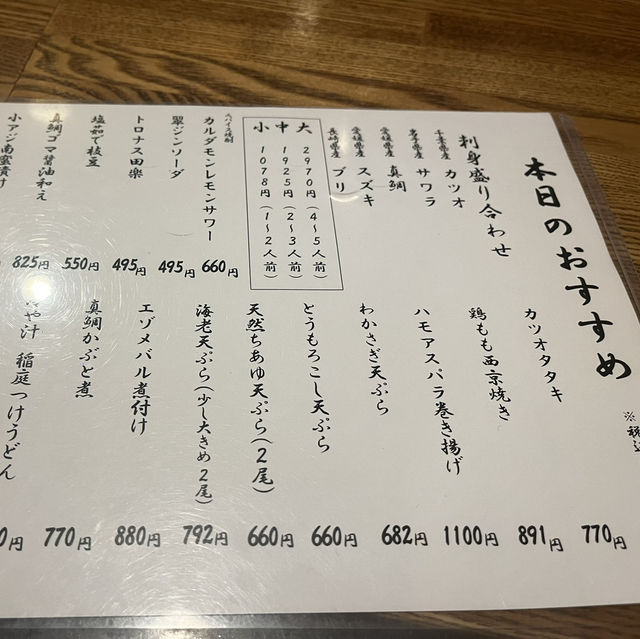 本日のおすすめ
※税込
刺身盛り合わせ
千葉県産 カツオ
岩手県産 サワラ
愛媛県産 真鯛
愛媛県産 スズキ
長崎県産 ブリ
大 2970円(4〜5人前)
中 1925円(2〜3人前)
小 1078円(1〜2人前)
カルダモンレモンサワー 660円
翠ジンソーダ 495円
トロナス田楽 495円
塩茹で枝豆 550円
真鯛ゴマ醤油和え 825円
小アジ南蛮漬け
カツオタタキ 770円
鶏もも西京焼き 891円
ハモアスパラ巻き揚げ 1100円
わかさぎ天ぷら 682円
とうもろこし天ぷら 660円
天然ちあゆ天ぷら(2尾) 660円
海老天ぷら(少し大きめ2尾) 792円
エゾメバル煮付け 880円
真鯛かぶと煮 770円
冷や汁 稲庭つけうどん